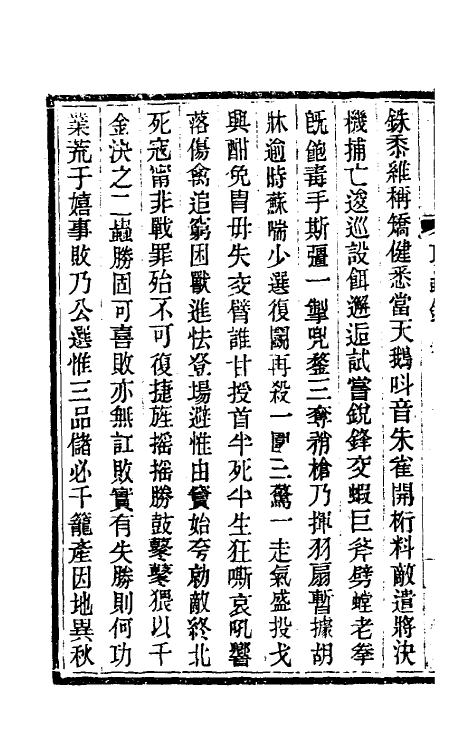 銖黍維稱矯健悉當天鵝呌音朱雀開桁料敵遣將決
機捕亡逡巡設餌邂逅試嘗銳鋒交蝦巨斧劈螳老拳
旣飽毒手斯彊一掣兜鍪三奪矟槍乃揮羽扇暫據胡
牀逾時蘇喘少選復鬭再殺一圍三驚一走氣盛投戈
興酣免冑毋失交臂誰甘授首半死半生狂嘶哀吼響
落傷禽追窮困獸進怯登場避惟由竇始夸勍敵終北
死寇甯非戰罪殆不可復捷旌搖搖勝鼓鼕鼕猥以千
金決之二蟲勝固可喜敗亦無訌敗實有失勝則何功
業荒于嬉事敗乃公選惟三品儲必千籠產因地異秋